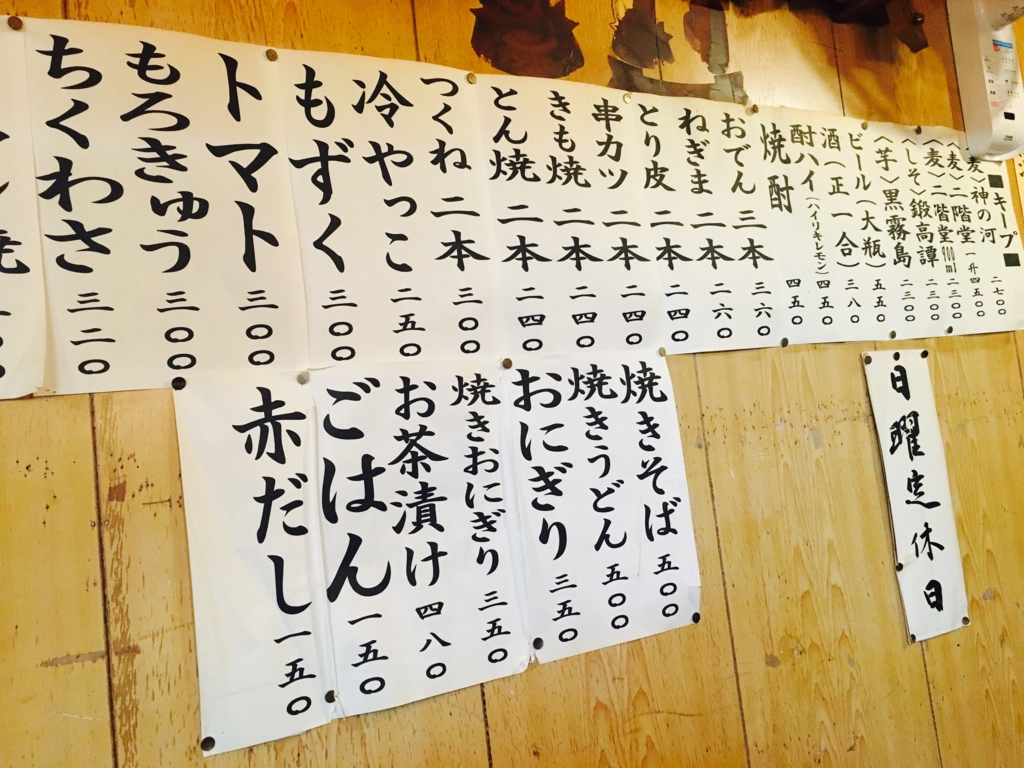 ■キープ■
〈麦〉神の河 一升四五〇〇
二七〇〇
〈麦〉二階堂900ml 二三〇〇
〈麦〉二階堂 二三〇〇
〈しそ〉鍛高譚 二三〇〇
〈芋〉黒霧島 二三〇〇
ビール(大瓶) 五五〇
酒(正一合) 三八〇
酎ハイ(ハイリキレモン) 四五〇
焼酎 四五〇
おでん 三本 三六〇
ねぎま 二本 二六〇
とり皮 二本 二四〇
串カツ 二本 二四〇
きも焼 二本 二四〇
とん焼 二本 二四〇
つくね 二本 三〇〇
冷やっこ 二五〇
もずく 三〇〇
トマト 三〇〇
もろきゅう 三〇〇
ちくわさ 三二〇
焼きそば 五〇〇
焼きうどん 五〇〇
おにぎり 三五〇
焼きおにぎり 三五〇
お茶漬け 四八〇
ごはん 一五〇
赤だし 一五〇
日曜定休日